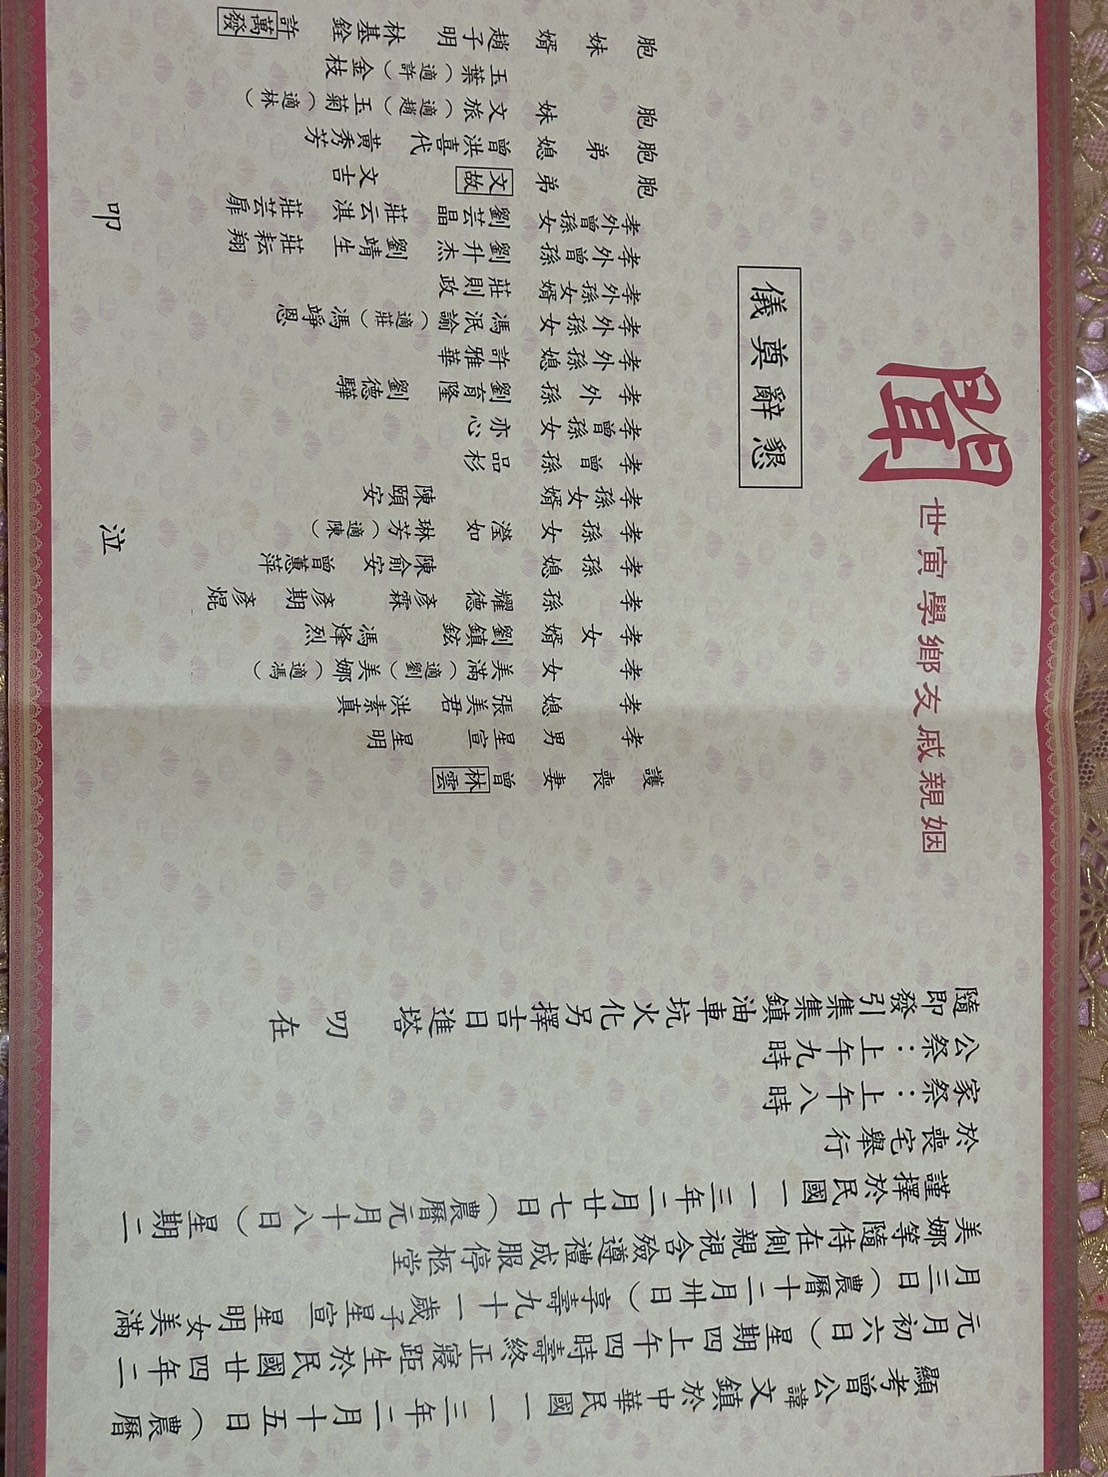 顯考曾公諱文鎮於中華民國一一三年二月十五日(農曆
元月初六日)星期四上午四時壽終正寢距生於民國廿四年二
月三日(農曆十二月卅日)享壽九十一歲子星宣 星明 女美滿
美娜等隨侍在側親視含殮遵禮成服停柩堂
謹擇於民國一一三年二月廿七日(農曆元月十八日)星期二
於喪宅舉行
家祭:上午八時
公祭:上午九時
隨即發引集集鎮油車坑火化另擇吉日進塔 叨 在
姻親戚友鄉學寅世
聞
懇辭奠儀
護喪妻 曾林雲
孝男 星宣 星明
孝媳 張美君 洪素真
孝女 美滿(適劉) 美娜(適馮)
孝女婿 劉鎮鉉 馮烽烈
孝孫 耀德 彥霖 彥期 彥焜
孝孫媳 陳俞安 曾蕙萍
孝孫女 瀅如 琳芳(適陳)
孝孫女婿 陳頤安
孝曾孫 品杉
孝曾孫女 亦心
孝外孫 劉育隆 劉德驊
孝外孫媳 許雅華
孝外孫女 馮泯諭(適莊) 馮竫恩
孝外孫女婿 莊則政
孝外曾孫 劉升杰 劉靖生 莊耘翔
孝外曾孫女 劉芸晶 莊云淇 莊芸扉
胞弟 文故 文吉
胞弟媳 曾洪喜代 黃秀芳
胞妹 文旅(適趙) 玉菊(適林)
玉葉(適許) 金枝
胞妹婿 趙子明 林基銓 許萬發
泣 叩